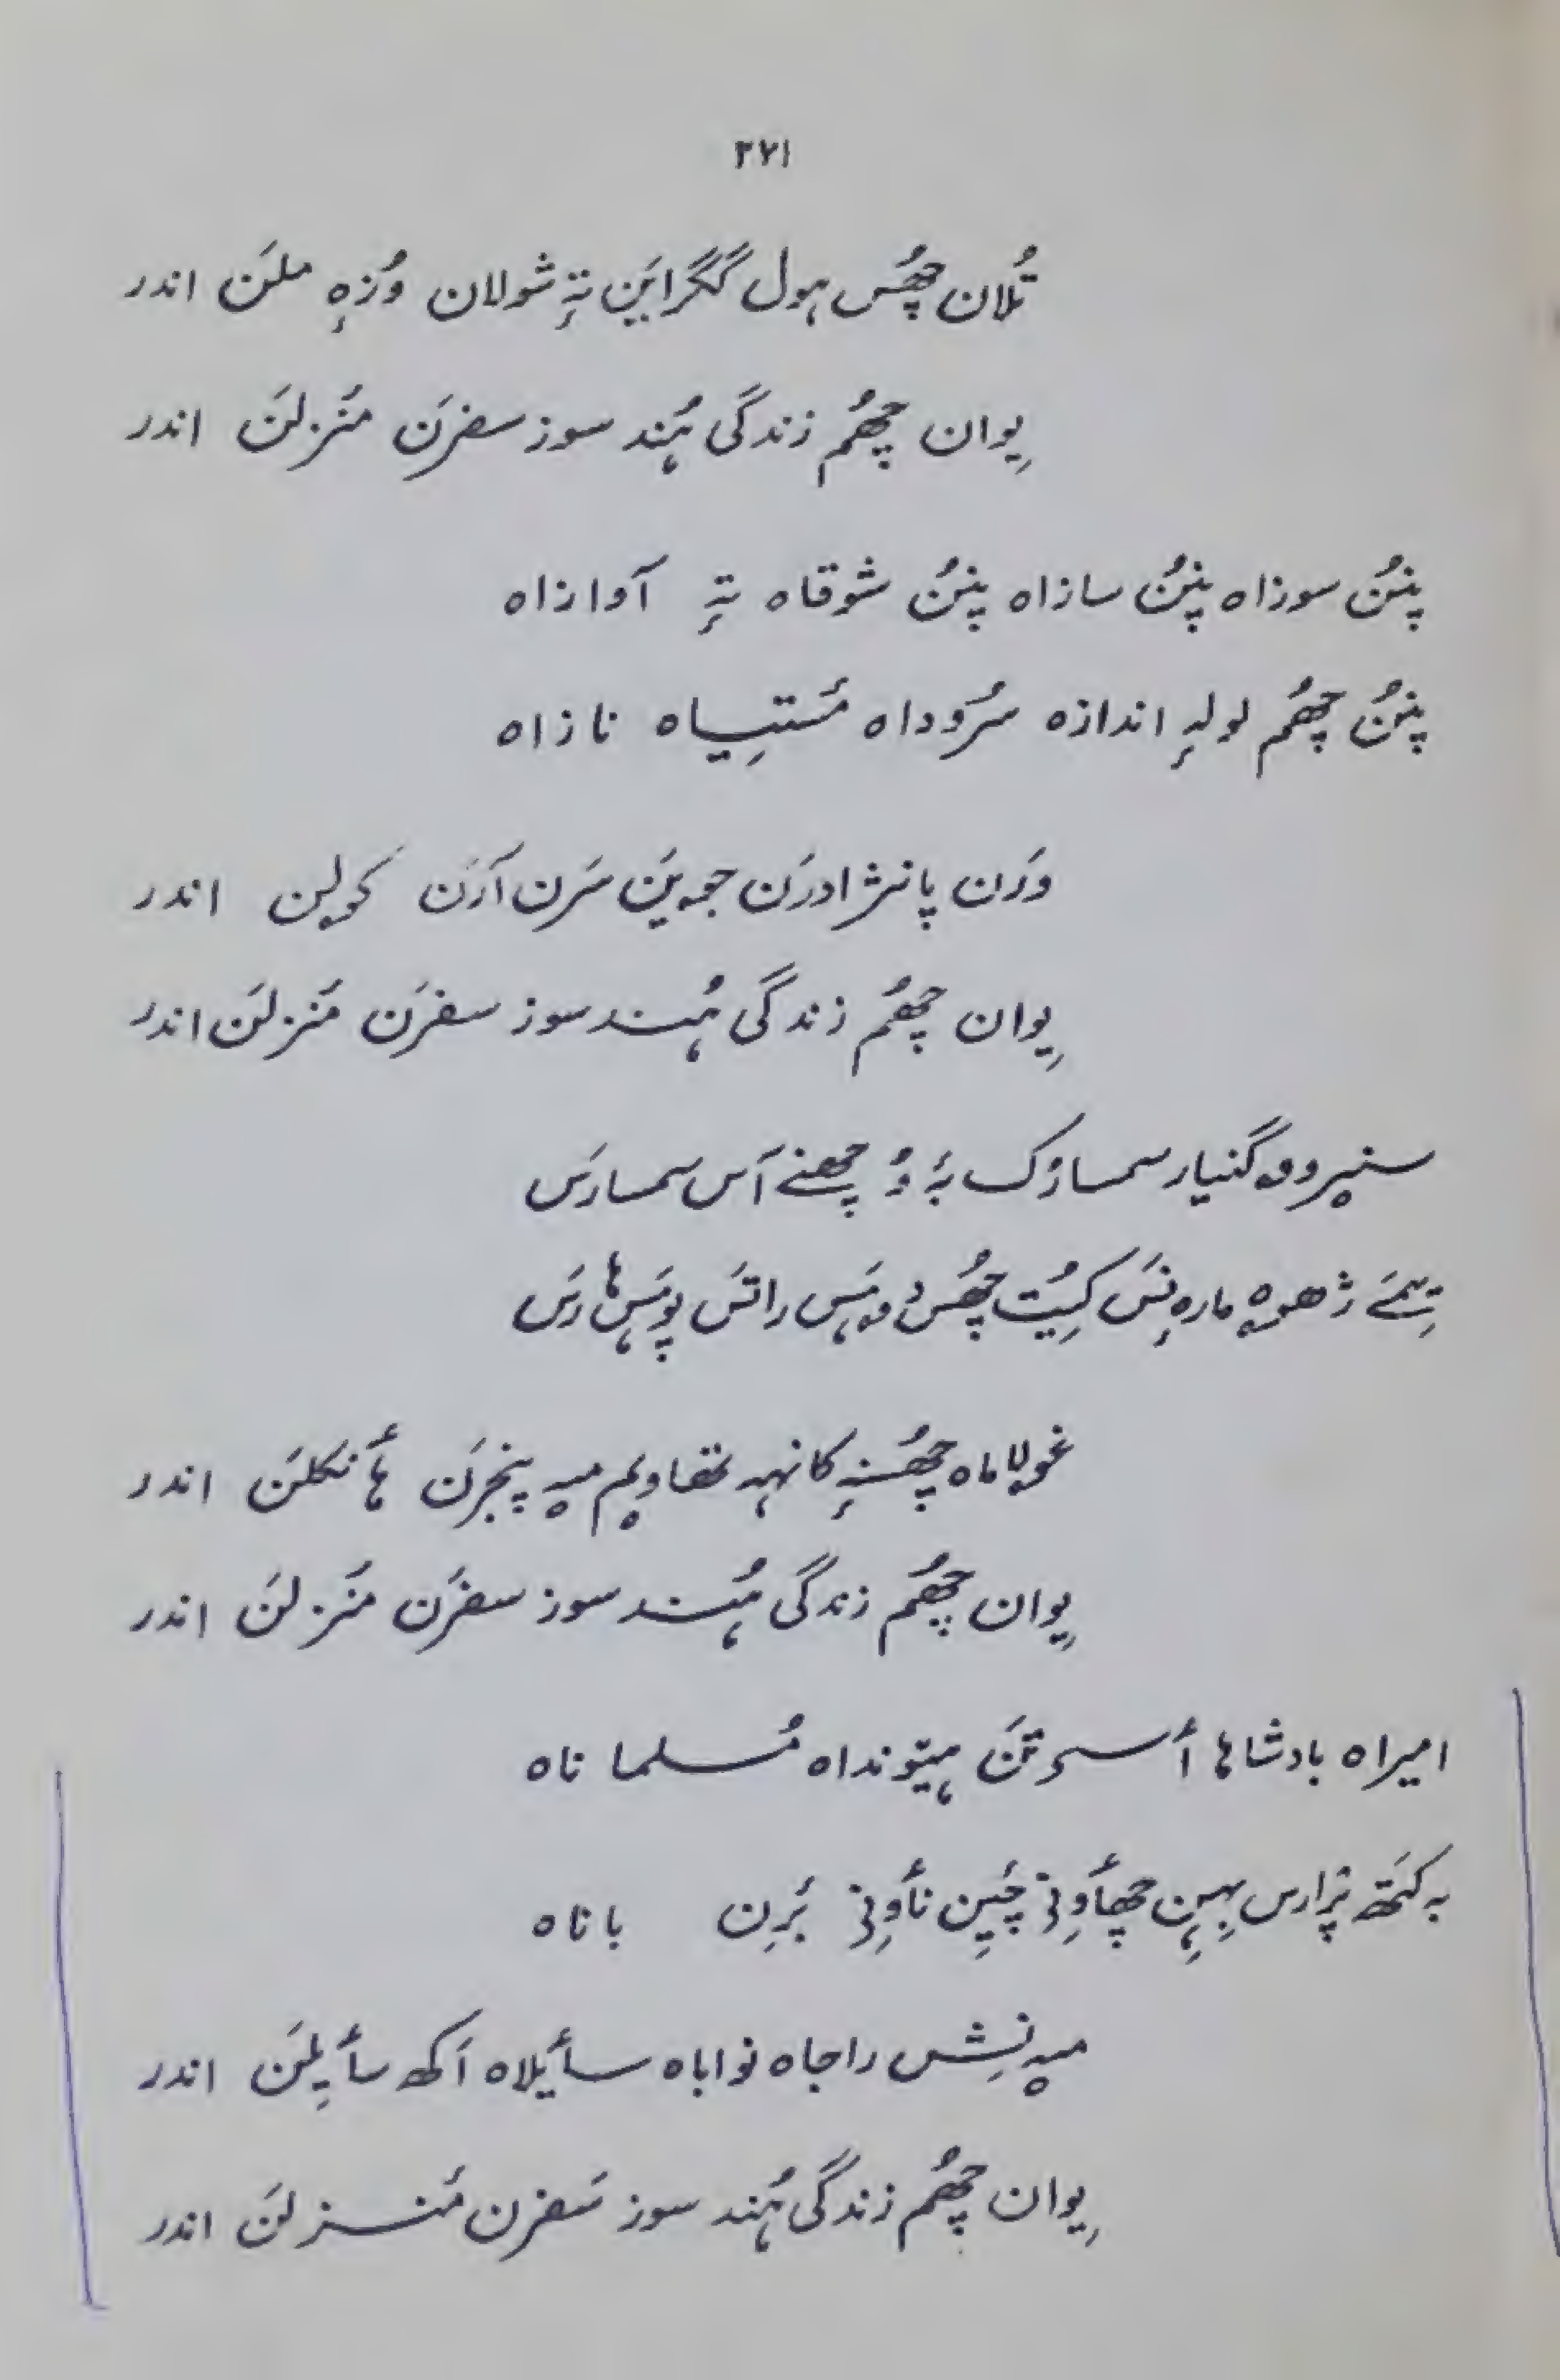 ٣٧١
تُلان چھُس ہول گگراین تہٕ شولان وُزٕہ ملَن اندر
یِوان چھُم زندگی ہُند سوز سفرَن منَزلَن اندر
پنُن سوزاہ پنُن سازاہ پنُن شوقاہ تہٕ آوازاہ
پنُن چھُم لولہٕ اندازہ سرُوداہ مَستیِاہ نازاہ
وَرَن پانژادرَن جویَن سَرن آرَن کولین اندر
یِوان چھُم زندگی ہُند سوز سفرَن مَنزلَن اندر
گنیار سمسارُک بہٕ وُ چھنے آس سمسارَس
کِیُت چھُس راتَس
غولاماہ چھُسنہٕ کانہہ تھاویم میہ پنجرَن ہأنکلَن اندر
یِوان چھُم زندگی ہُند سوز سفرَن منَزلَن اندر
امیراہ بادشاہا أسۍ تَن ہیٚونداہ مُسلماناہ
بہ کَتھ پرٛارس بہِنہِ چھأوِنۍ چیٚیِن نأوِنۍ بَرِن باناہ
میہ نِشس راجاہ نواباہ سأیلاہ اَکھ سأیِلَن اندر
یِوان چھُم زندگی ہُند سوز سَفرن مَنزلَن اندر